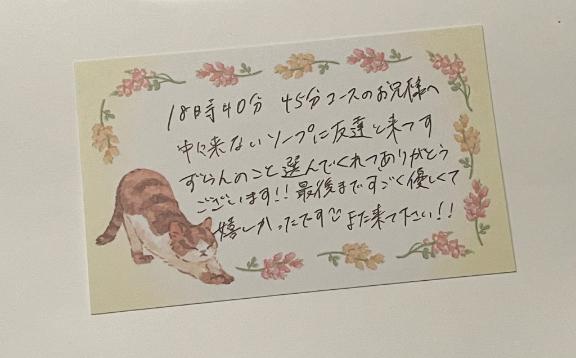 18時40分 45分コースのお兄様へ
中々来ないソープに友達と来てす
ずらんのこと選んでくれてありがとう
ございます!! 最後まですごく優しくて
嬉しかったです また来て下さい!!